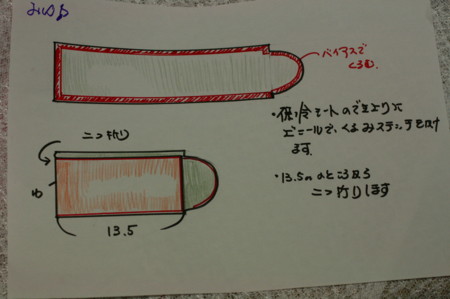 バイアスで
くるむ
・保冷シートのでき上りに
ビニールで、くるみステッチをかけ
ます。
二つ折り
・13.5のところから
二つ折りします
13.5